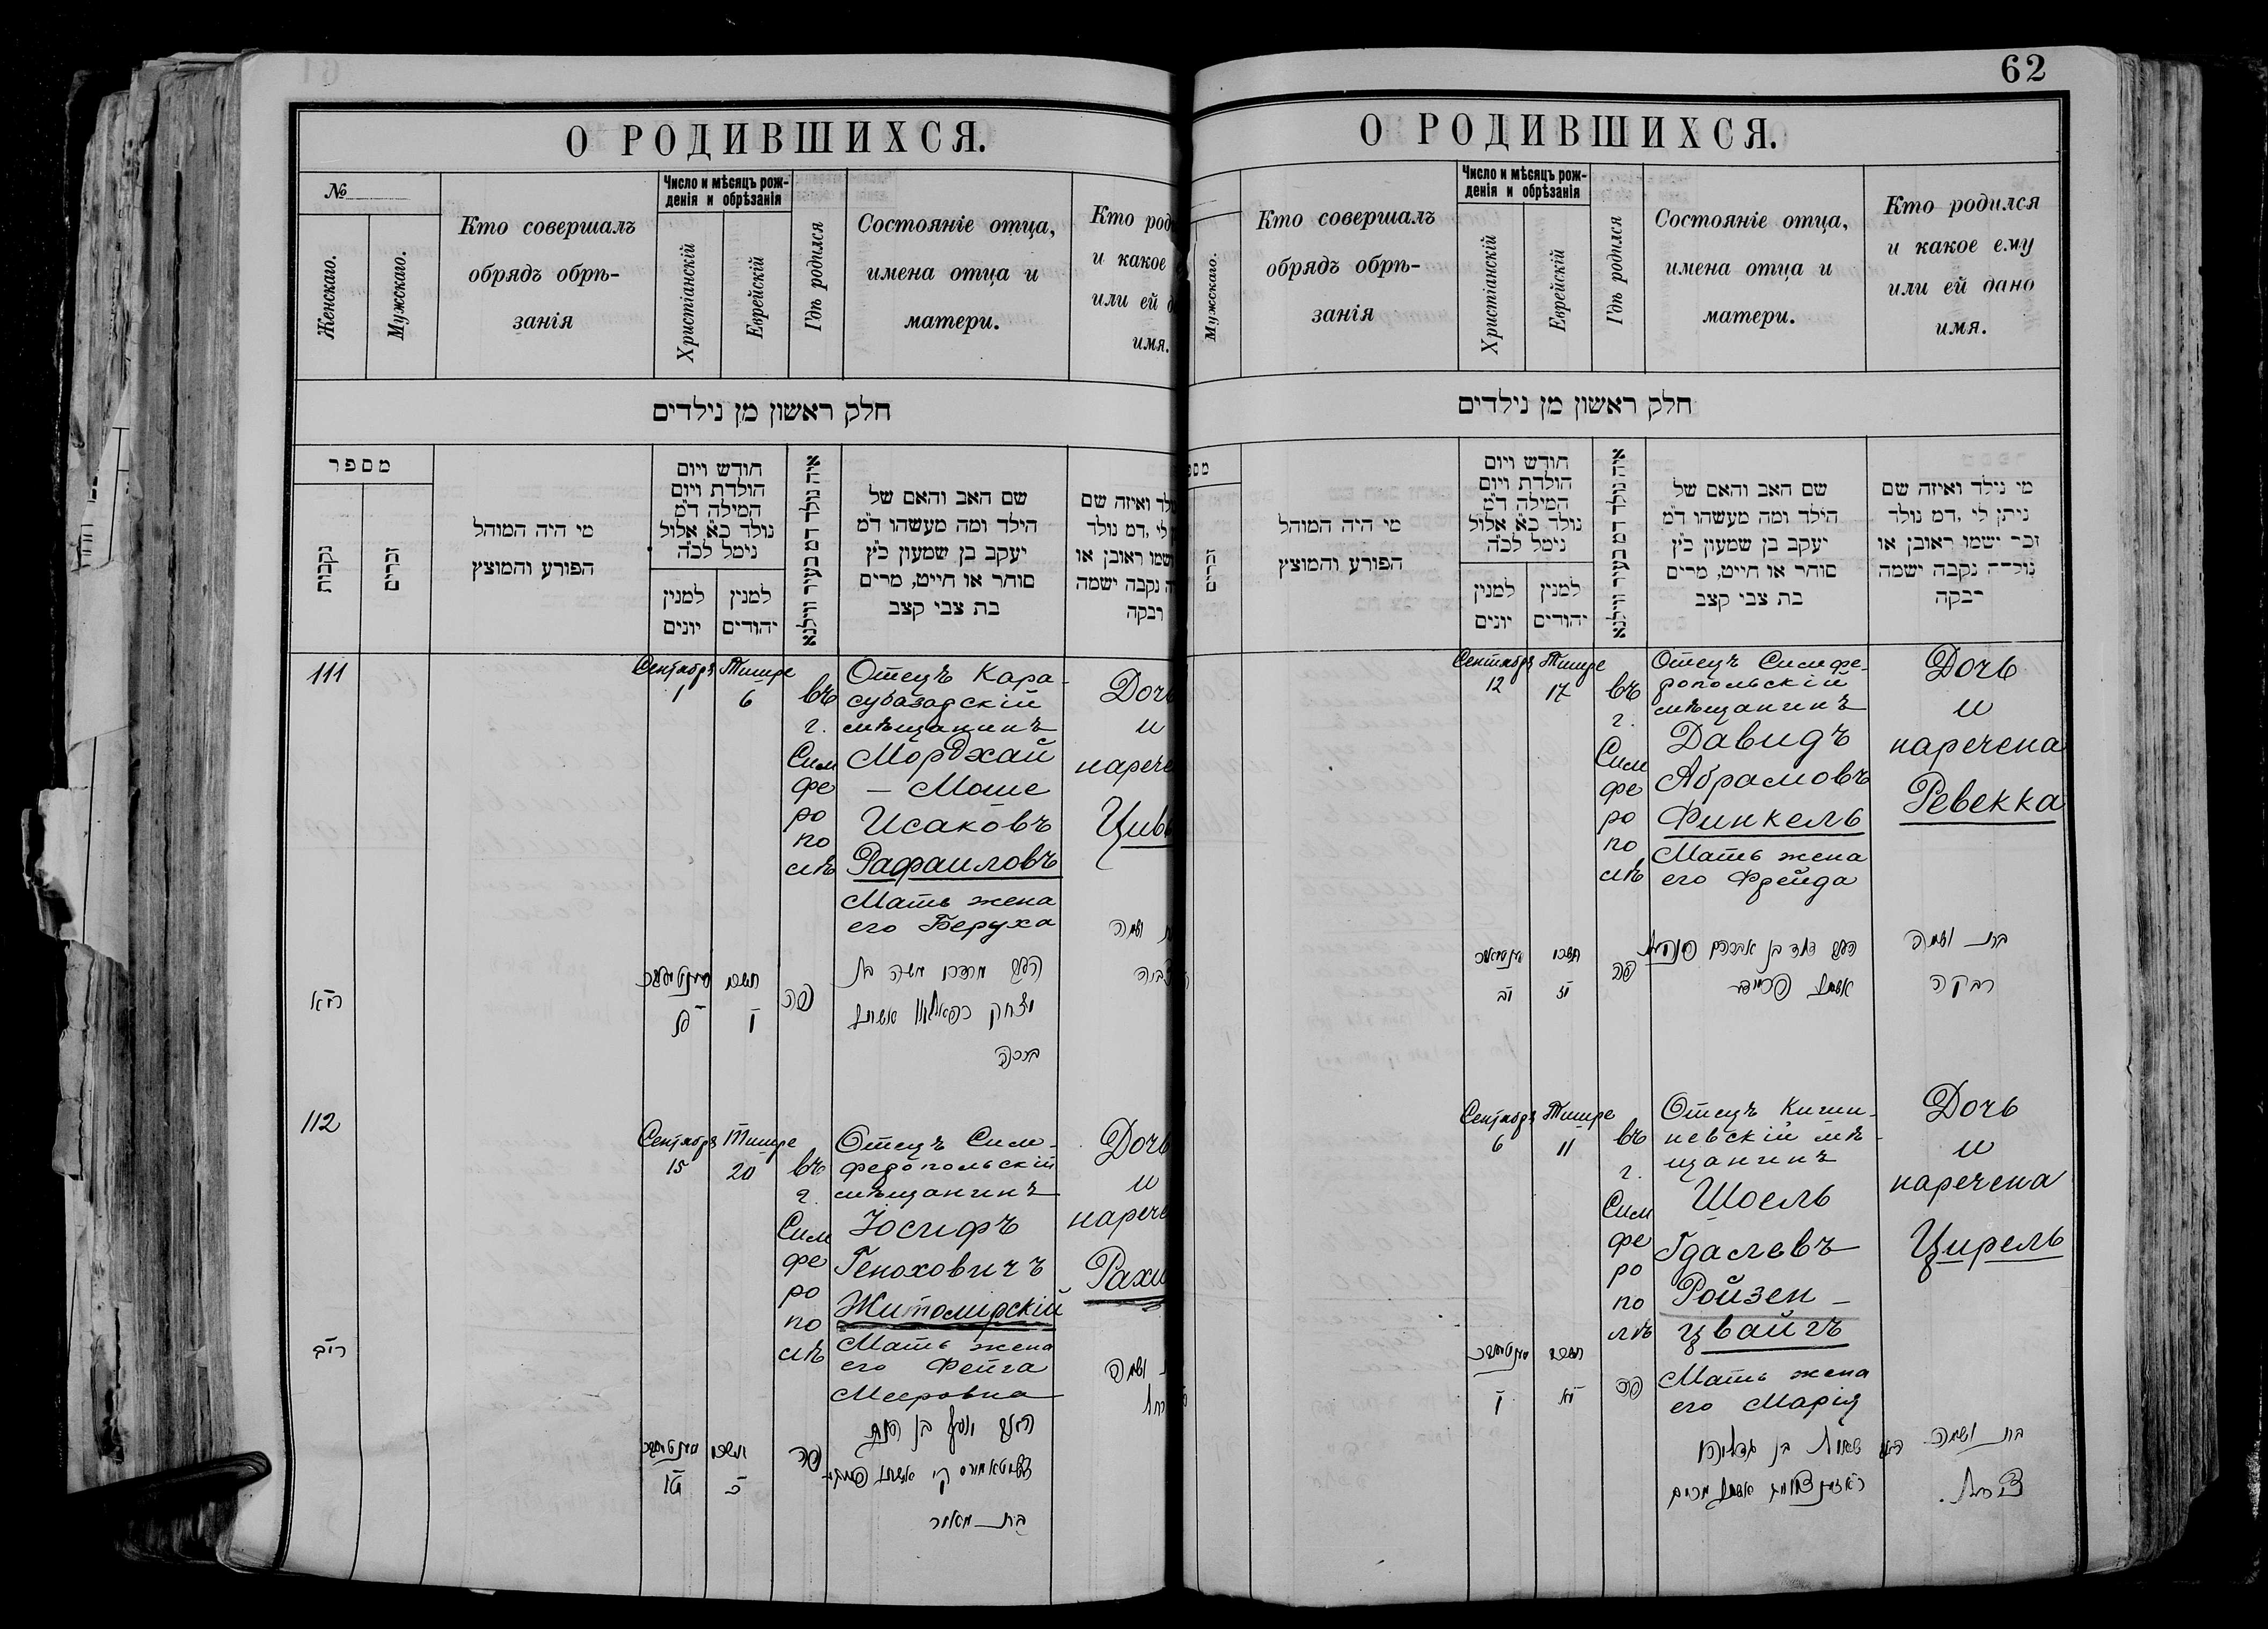 О РОДИВШИХСЯ.
№
Женскаго.
Мужскаго.
Кто совершалъ
обрядъ обрѣ-
занія
Число и мѣсяцъ рож-
денія и обрѣзанія
Христіанскій
Еврейскій
Гдѣ родился
Состояніе отца,
имена отца и
матери.
Кто род
и какое
или ей д
имя.
חלק ראשון מן נילדים
מספר
נקבות
זכרים
מי היה המוהל
הפורע והמוצץ
חודש ויום
הולדת ויום
המילה ד"מ
נולד כ"א אלול
נימל לכ"ה
למנין
יונים
למנין
יהודים
איה נולד דמ בעיר ווילנא
שם האב והאם של
הילד ומה מעשהו ד"מ
יעקב בן שמעון כ"ץ
סוחר או חייט, מרים
בת צבי קצב
לד ואיזה שם
לי ,דמ נולד
שמו ראובן או
ה נקבה ישמה
רבקה
111
Сентябрь
1
Тишре
6
въ
г.
Сим
фе
ро
по
лѣ
Отецъ Кара-
субазарскій
мѣщанинъ
Мордхай
— Моше
Исаковъ
Рафаиловъ
Мать жена
его Беруха
Дочь
и
нарече
Цив
קיא
תשרי
ו
פה
מרדכי משה בן
יצחק רפאילוו אשתו
ברכה
ושמה
צביה
112
Сентябрь
15
Тишре
20
въ
г.
Сим
фе
ро
по
лѣ
Отецъ Сим-
феропольскій
мѣщанинъ
Іосифъ
Геноховичъ
Житомирскій
Мать жена
его Фейга
Мееровна
Дочь
и
нарече
Рахи
קיב
תשרי
כ
טו
פה
יוסף בן
אשתו
בת מאיר
ושמה
62
О РОДИВШИХСЯ.
Мужскаго.
Кто совершалъ
обрядъ обрѣ-
занія
Число и мѣсяцъ рож-
денія и обрѣзанія
Христіанскій
Еврейскій
Гдѣ родился
Состояніе отца,
имена отца и
матери.
Кто родился
и какое ему
или ей дано
имя.
חלק ראשון מן נילדים
מספ
זכרים
מי היה המוהל
הפורע והמוצץ
חודש ויום
הולדת ויום
המילה ד"מ
נולד כ"א אלול
נימל לכ"ה
למנין
יונים
למנין
יהודים
איה נולד דמ בעיר ווילנא
שם האב והאם של
הילד ומה מעשהו ד"מ
יעקב בן שמעון כ"ץ
סוחר או חייט, מרים
בת צבי קצב
מי נילד ואיזה שם
ניתן לי ,דמ נולד
זכר ישמו ראובן או
נולדה נקבה ישמה
רבקה
Сентябрь
12
Тишре
17
въ
г.
Сим
фе
ро
по
лѣ
Отецъ Симфе-
ропольскій
мѣщанинъ
Давидъ
Абрамовъ
Финкель
Мать жена
его Фрейда
Дочь
и
наречена
Ревекка
תשרי
יז
יב
פה
דוד בן אברהם פינקיל
אשתו פריידי
בת ושמה
רבקה
Сентябрь
6
Тишре
11
въ
г.
Сим
фе
ро
по
лѣ
Отецъ Киши-
невскій мѣ-
щанинъ
Шоель
Гдалевъ
Ройзен-
цвайгъ
Мать жена
его Марія
Дочь
и
наречена
Цирель
תשרי
יא
ו
פה
שאול בן גדליהו
אשתו מרים
בת ושמה
צירל.